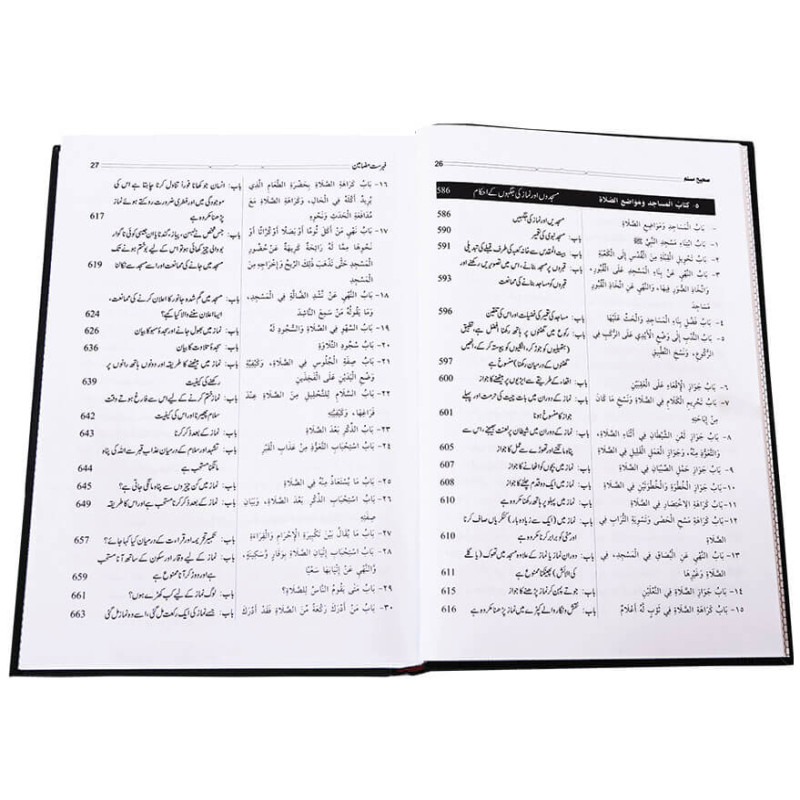 صحیح مسلم 26
٥- كتاب المساجد ومواضع الصلاة مسجدوں اور نماز کی جگہوں کے احکام 586
- بَابُ الْمَسَاجِدِ وَمَوَاضِعِ الصَّلَاةِ مسجدیں اور نماز کی جگہیں 586
١- بَابُ ابْتِنَاءِ مَسْجِدِ النَّبِيِّ ﷺ باب: مسجد نبوی کی تعمیر 590
٢- بَابُ تَحْوِيلِ الْقِبْلَةِ مِنَ الْقُدْسِ إِلَى الْكَعْبَةِ باب: بیت المقدس سے خانہ کعبہ کی طرف قبلے کی تبدیلی 591
٣- بَابُ النَّهْيِ عَنْ بِنَاءِ الْمَسْجِدِ عَلَى الْقُبُورِ، باب: قبروں پر مسجد بنانے، اس میں تصویریں رکھنے اور
وَاتِّخَاذِ الصُّوَرِ فِيهَا، وَالنَّهْيِ عَنِ اتِّخَاذِ الْقُبُورِ قبروں کو مساجد بنانے کی ممانعت 593
مَسَاجِدَ
٤- بَابُ فَضْلِ بِنَاءِ الْمَسَاجِدِ وَالْحَثِّ عَلَيْهَا باب: مساجد کی تعمیر کی فضیلت اور اس کی تلقین 596
٥- بَابُ النَّدْبِ إِلَى وَضْعِ الْأَيْدِي عَلَى الرُّكَبِ فِي باب: رکوع میں گھٹنوں پر ہاتھ رکھنا افضل ہے، تطبیق
الرُّكُوعِ، وَنَسْخِ التَّطْبِيقِ (ہتھیلیوں کو جوڑ کر، انگلیوں کو پیوستہ کر کے،
گھٹنوں کے درمیان رکھنا) منسوخ ہے 597
٦- بَابُ جَوَازِ الْإِقْعَاءِ عَلَى الْعَقِبَيْنِ باب: اقعاء کے طریقے سے ایڑیوں پر بیٹھنے کا جواز 600
٧- بَابُ تَحْرِيمِ الْكَلَامِ فِي الصَّلَاةِ وَنَسْخِ مَا كَانَ باب: نماز کے دوران میں بات چیت کی حرمت اور پہلے
مِنْ إِبَاحَتِهِ جواز کا منسوخ ہونا 601
٨- بَابُ جَوَازِ لَعْنِ الشَّيْطَانِ فِي أَثْنَاءِ الصَّلَاةِ، باب: نماز کے دوران میں شیطان پر لعنت بھیجنے، اس سے
وَالتَّعَوُّذِ مِنْهُ، وَجَوَازِ الْعَمَلِ الْقَلِيلِ فِي الصَّلَاةِ پناہ مانگنے اور تھوڑے سے عمل کا جواز 605
٩- بَابُ جَوَازِ حَمْلِ الصِّبْيَانِ فِي الصَّلَاةِ باب: نماز میں بچوں کو اٹھانے کا جواز 607
١٠- بَابُ جَوَازِ الْخُطْوَةِ وَالْخُطْوَتَيْنِ فِي الصَّلَاةِ باب: نماز میں ایک دو قدم چلنے کا جواز 608
١١- بَابُ كَرَاهَةِ الِاخْتِصَارِ فِي الصَّلَاةِ باب: نماز میں پہلو پر ہاتھ رکھنا مکروہ ہے 610
١٢- بَابُ كَرَاهَةِ مَسْحِ الْحَصَى وَتَسْوِيَةِ التُّرَابِ فِي باب: نماز میں (ایک سے زیادہ بار) کنکریاں صاف کرنا
الصَّلَاةِ اور مٹی کو برابر کرنا مکروہ ہے 610
١٣- بَابُ النَّهْيِ عَنِ الْبُصَاقِ فِي الْمَسْجِدِ، فِي باب: دوران نماز یا نماز کے علاوہ مسجد میں تھوک (یا گلے
الصَّلَاةِ وَغَيْرِهَا کی آلائش) پھینکنا ممنوع ہے 611
١٤- بَابُ جَوَازِ الصَّلَاةِ فِي النَّعْلَيْنِ باب: جوتے پہن کر نماز پڑھنے کا جواز 615
١٥- بَابُ كَرَاهَةِ الصَّلَاةِ فِي ثَوْبٍ لَهُ أَعْلَامٌ باب: نقش و نگار والے کپڑے میں نماز پڑھنا مکروہ ہے 616
فہرست مضامین 27
١٦- بَابُ كَرَاهَةِ الصَّلَاةِ بِحَضْرَةِ الطَّعَامِ الَّذِي باب: انسان جو کھانا فوراً تناول کرنا چاہتا ہے اس کی
يُرِيدُ أَكْلَهُ فِي الْحَالِ، وَكَرَاهَةِ الصَّلَاةِ مَعَ موجودگی میں اور فطری ضرورت روکتے ہوئے نماز
مُدَافَعَةِ الْحَدَثِ وَنَحْوِهِ پڑھنا مکروہ ہے 617
١٧- بَابُ نَهْيِ مَنْ أَكَلَ ثُومًا أَوْ بَصَلًا أَوْ كُرَّاثًا أَوْ باب: جس شخص نے لہسن، پیاز، گندنا یا ان جیسی کوئی ناگوار
نَحْوَهَا مِمَّا لَهُ رَائِحَةٌ كَرِيهَةٌ عَنْ حُضُورِ بو والی چیز کھائی ہو تو اس کے لیے بو ختم ہونے تک
الْمَسْجِدِ حَتَّى تَذْهَبَ ذٰلِكَ الرِّيحُ وَإِخْرَاجِهِ مِنَ مسجد میں جانے کی ممانعت اور اسے مسجد سے نکالنا 619
الْمَسْجِدِ
١٨- بَابُ النَّهْيِ عَنْ نَشْدِ الضَّالَّةِ فِي الْمَسْجِدِ، باب: مسجد میں گم شدہ جانور کا اعلان کرنے کی ممانعت،
وَمَا يَقُولُهُ مَنْ سَمِعَ النَّاشِدَ ایسا اعلان سننے والا کیا کہے؟ 624
١٩- بَابُ السَّهْوِ فِي الصَّلَاةِ وَالسُّجُودِ لَهُ باب: نماز میں بھول جانے اور سجدۂ سہو کا بیان 626
٢٠- بَابُ سُجُودِ التِّلَاوَةِ باب: سجدۂ تلاوت کا بیان 636
٢١- بَابُ صِفَةِ الْجُلُوسِ فِي الصَّلَاةِ، وَكَيْفِيَّةِ باب: نماز میں بیٹھنے کا طریقہ اور دونوں ہاتھ رانوں پر
وَضْعِ الْيَدَيْنِ عَلَى الْفَخِذَيْنِ رکھنے کی کیفیت 639
٢٢- بَابُ السَّلَامِ لِلتَّحْلِيلِ مِنَ الصَّلَاةِ عِنْدَ باب: نماز ختم کرنے کے لیے اس سے فارغ ہوتے وقت
فَرَاغِهَا، وَكَيْفِيَّتِهِ سلام پھیرنا اور اس کی کیفیت 642
٢٣- بَابُ الذِّكْرِ بَعْدَ الصَّلَاةِ باب: نماز کے بعد ذکر کرنا 643
٢٤- بَابُ اسْتِحْبَابِ التَّعَوُّذِ مِنْ عَذَابِ الْقَبْرِ باب: تشہد اور سلام کے درمیان عذاب قبر سے اللہ کی پناہ
مانگنا مستحب ہے 644
٢٥- بَابُ مَا يُسْتَعَاذُ مِنْهُ فِي الصَّلَاةِ باب: نماز میں کن چیزوں سے پناہ مانگی جاتی ہے؟ 645
٢٦- بَابُ اسْتِحْبَابِ الذِّكْرِ بَعْدَ الصَّلَاةِ، وَبَيَانِ باب: نماز کے بعد ذکر کرنا مستحب ہے اور اس کا طریقہ 649
صِفَتِهِ
٢٧- بَابُ مَا يُقَالُ بَيْنَ تَكْبِيرَةِ الْإِحْرَامِ وَالْقِرَاءَةِ باب: تکبیر تحریمہ اور قراءت کے درمیان کیا کہا جائے؟ 657
٢٨- بَابُ اسْتِحْبَابِ إِتْيَانِ الصَّلَاةِ بِوَقَارٍ وَسَكِينَةٍ، باب: نماز کے لیے وقار اور سکون کے ساتھ آنا مستحب
وَالنَّهْيِ عَنْ إِتْيَانِهَا سَعْيًا ہے اور دوڑ کر آنا ممنوع ہے 659
٢٩- بَابُ مَتَى يَقُومُ النَّاسُ لِلصَّلَاةِ؟ باب: لوگ نماز کے لیے کب کھڑے ہوں؟ 661
٣٠- بَابُ مَنْ أَدْرَكَ رَكْعَةً مِنَ الصَّلَاةِ فَقَدْ أَدْرَكَ باب: جسے نماز کی ایک رکعت مل گئی، اسے وہ نماز مل گئی 663